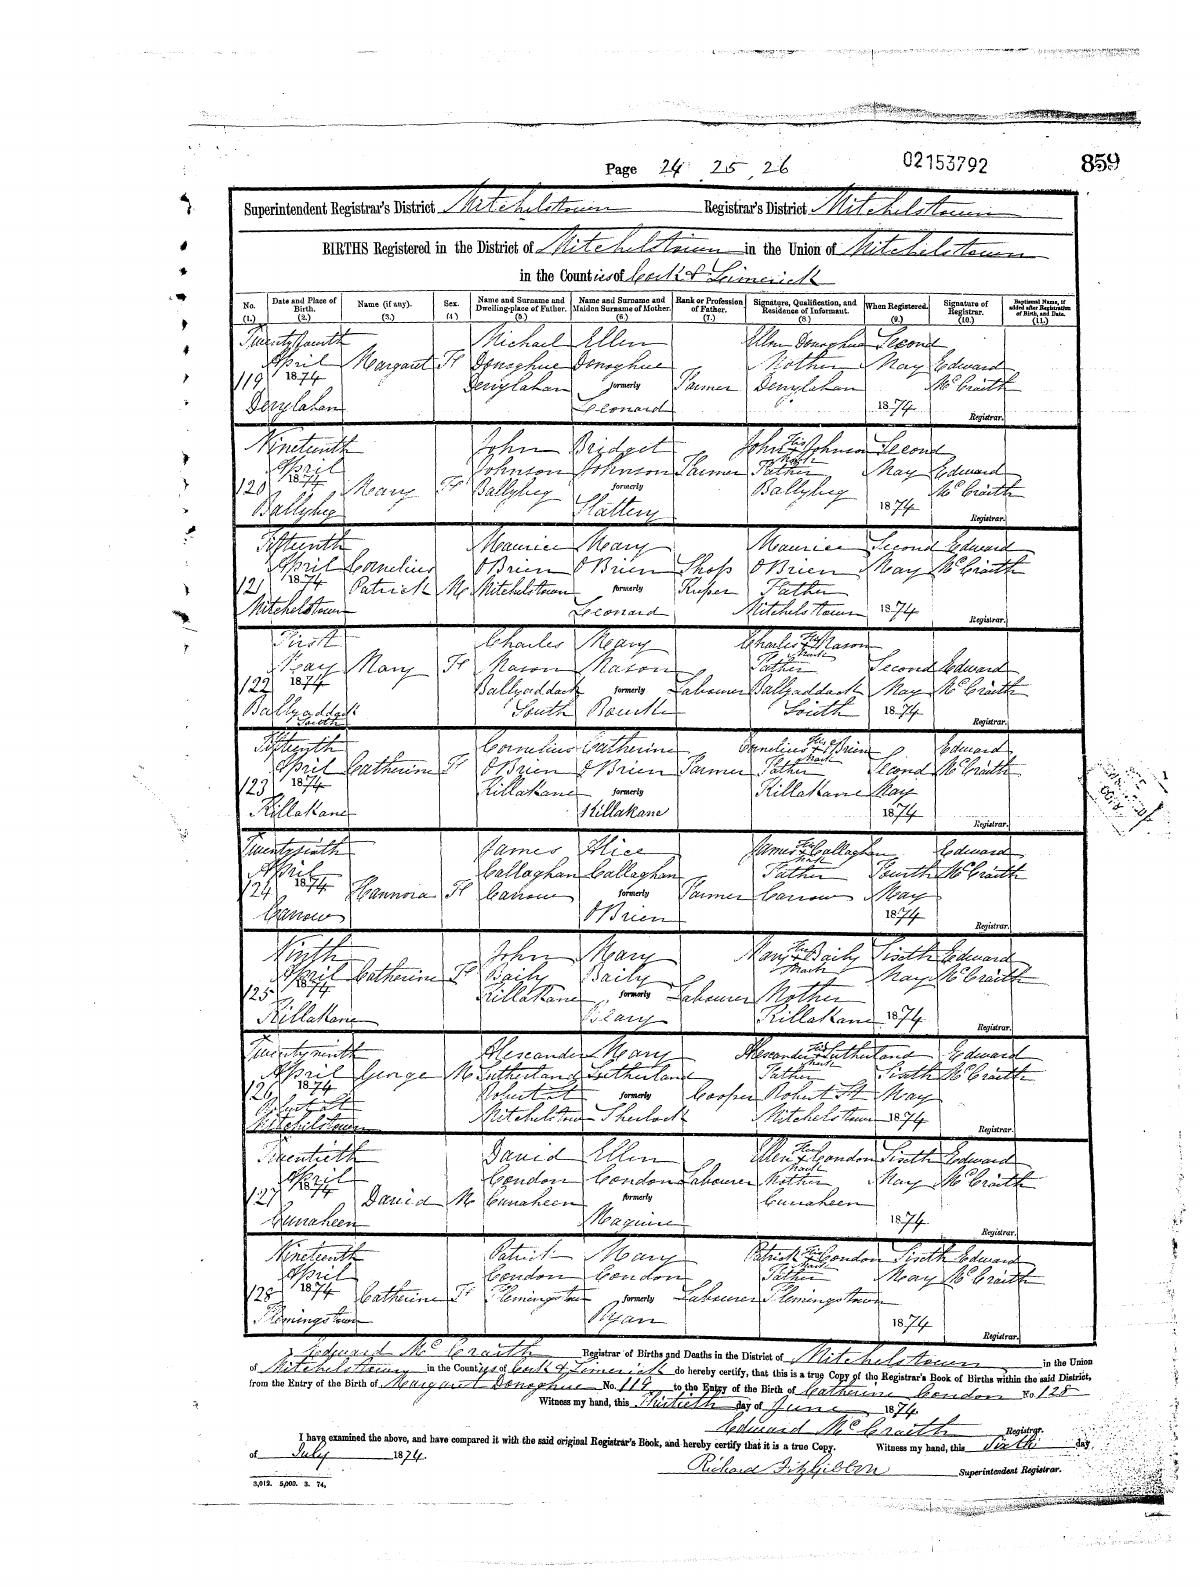 Page 24 25 26 02153792 859
Superintendent Registrar's District Mitchelstown Registrar's District Mitchelstown
BIRTHS Registered in the District of Mitchelstown in the Union of Mitchelstown
in the Counties of Cork & Limerick
No. (1.) Date and Place of Birth. (2.) Name (if any). (3.) Sex. (4.) Name and Surname and Dwelling-place of Father. (5.) Name and Surname and Maiden Surname of Mother. (6.) Rank or Profession of Father. (7.) Signature, Qualification, and Residence of Informant. (8.) When Registered. (9.) Signature of Registrar. (10.) Baptismal Name, if added after Registration of Birth, and Date. (11.)
119 Twentyfourth April 1874 Derrylahan Margaret F Michael Donoghue Derrylahan Ellen Donoghue formerly Leonard Farmer Ellen Donoghue Mother Derrylahan Second May 1874 Edward McCraith Registrar.
120 Nineteenth April 1874 Ballybeg Mary F John Johnson Ballybeg Bridget Johnson formerly Slattery Farmer John his x mark Johnson Father Ballybeg Second May 1874 Edward McCraith Registrar.
121 Fifteenth April 1874 Mitchelstown Cornelius Patrick M Maurice O'Brien Mitchelstown Mary O'Brien formerly Leonard Shop Keeper Maurice O'Brien Father Mitchelstown Second May 1874 Edward McCraith Registrar.
122 First May 1874 Ballyaddack South Mary F Charles Mason Ballyaddack South Mary Mason formerly Bourke Labourer Charles his x mark Mason Father Ballyaddack South Second May 1874 Edward McCraith Registrar.
123 Fifteenth April 1874 Killakane Catherine F Cornelius O'Brien Killakane Catherine O'Brien formerly Killakane Farmer Cornelius his x mark O'Brien Father Killakane Second May 1874 Edward McCraith Registrar.
124 Twentysixth April 1874 Carrow Hannora F James Callaghan Carrow Alice Callaghan formerly O'Brien Farmer James his x mark Callaghan Father Carrow Fourth May 1874 Edward McCraith Registrar.
125 Ninth April 1874 Killakane Catherine F John Baily Killakane Mary Baily formerly Leary Labourer Mary her x mark Baily Mother Killakane Sixth May 1874 Edward McCraith Registrar.
126 Twentyninth April 1874 Robert St Mitchelstown George M Alexander Sutherland Robert St Mitchelstown Mary Sutherland formerly Sherlock Cooper Alexander his x mark Sutherland Father Robert St Mitchelstown Sixth May 1874 Edward McCraith Registrar.
127 Twentieth April 1874 Curraheen David M David Condon Curraheen Ellen Condon formerly Maguire Labourer Ellen her x mark Condon Mother Curraheen Sixth May 1874 Edward McCraith Registrar.
128 Nineteenth April 1874 Flemingstown Catherine F Patrick Condon Flemingstown Mary Condon formerly Ryan Labourer Patrick his x mark Condon Father Flemingstown Sixth May 1874 Edward McCraith Registrar.
I, Edward McCraith Registrar of Births and Deaths in the District of Mitchelstown in the Union
of Mitchelstown in the Counties of Cork & Limerick do hereby certify, that this is a true Copy of the Registrar's Book of Births within the said District,
from the Entry of the Birth of Margaret Donoghue No. 119 to the Entry of the Birth of Catherine Condon No. 128
Witness my hand, this Thirtieth day of June 1874.
Edward McCraith Registrar.
I have examined the above, and have compared it with the said original Registrar's Book, and hereby certify that it is a true Copy. Witness my hand, this Sixth day
of July 1874.
Richard FitzGibbon Superintendent Registrar.
3,012. 5,000. 3. 74.